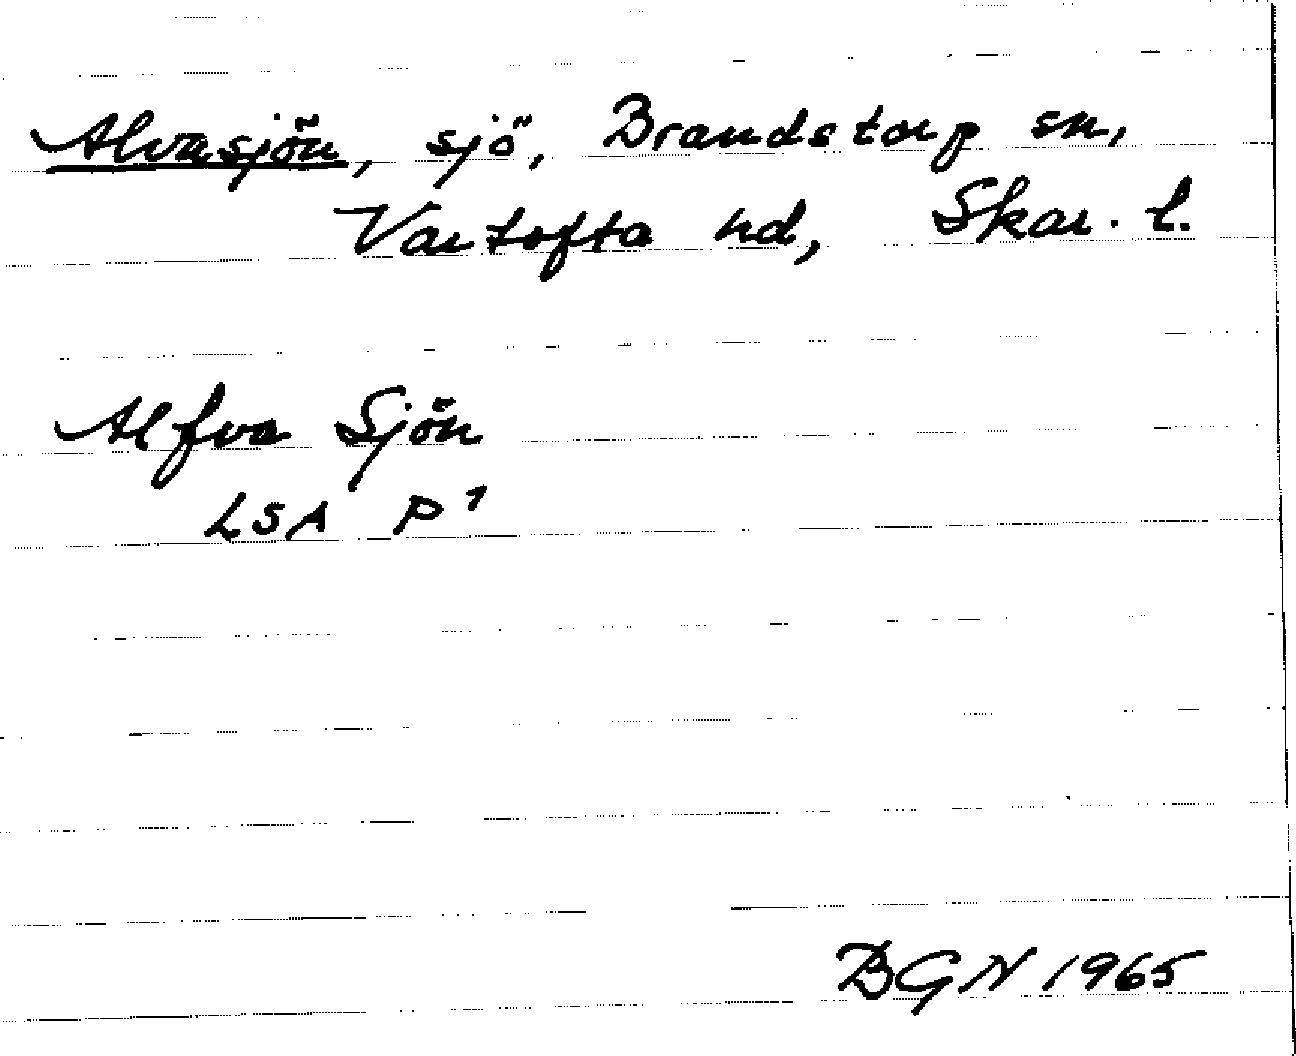 Alvasjön, sjö, Brandstorp sn,
Vartofta hd, Skar. l.
Alfva Sjön
LSA P¹
BGN 1965